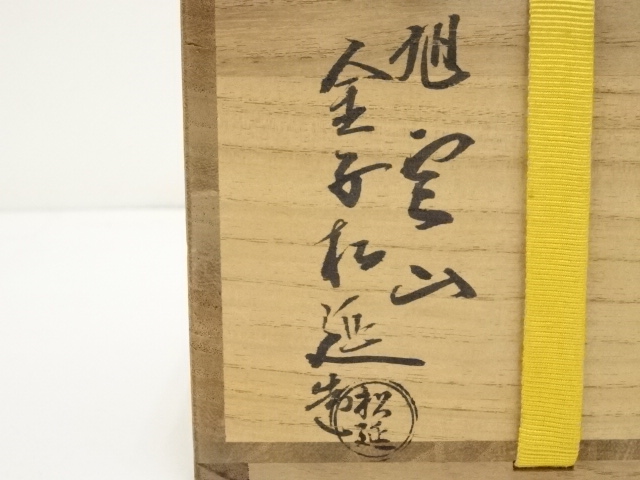 旭雲山
金子松延造
松延